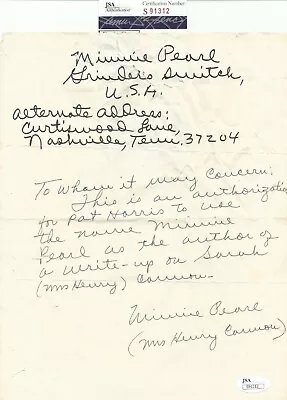 JSA
Authentication
Certification Number
S 91312
Minnie Pearl
Grinders Switch,
U.S.A.
alternate address:
Curtiswood Lane,
Nashville, Tenn, 37204
To whom it may concern:
This is an authorization
for Pat Harris to use
the name Minnie
Pearl as the author of
a write-up on Sarah
(Mrs Henry) Cannon-
Minnie Pearl
(Mrs Henry Cannon)
JSA
S91312